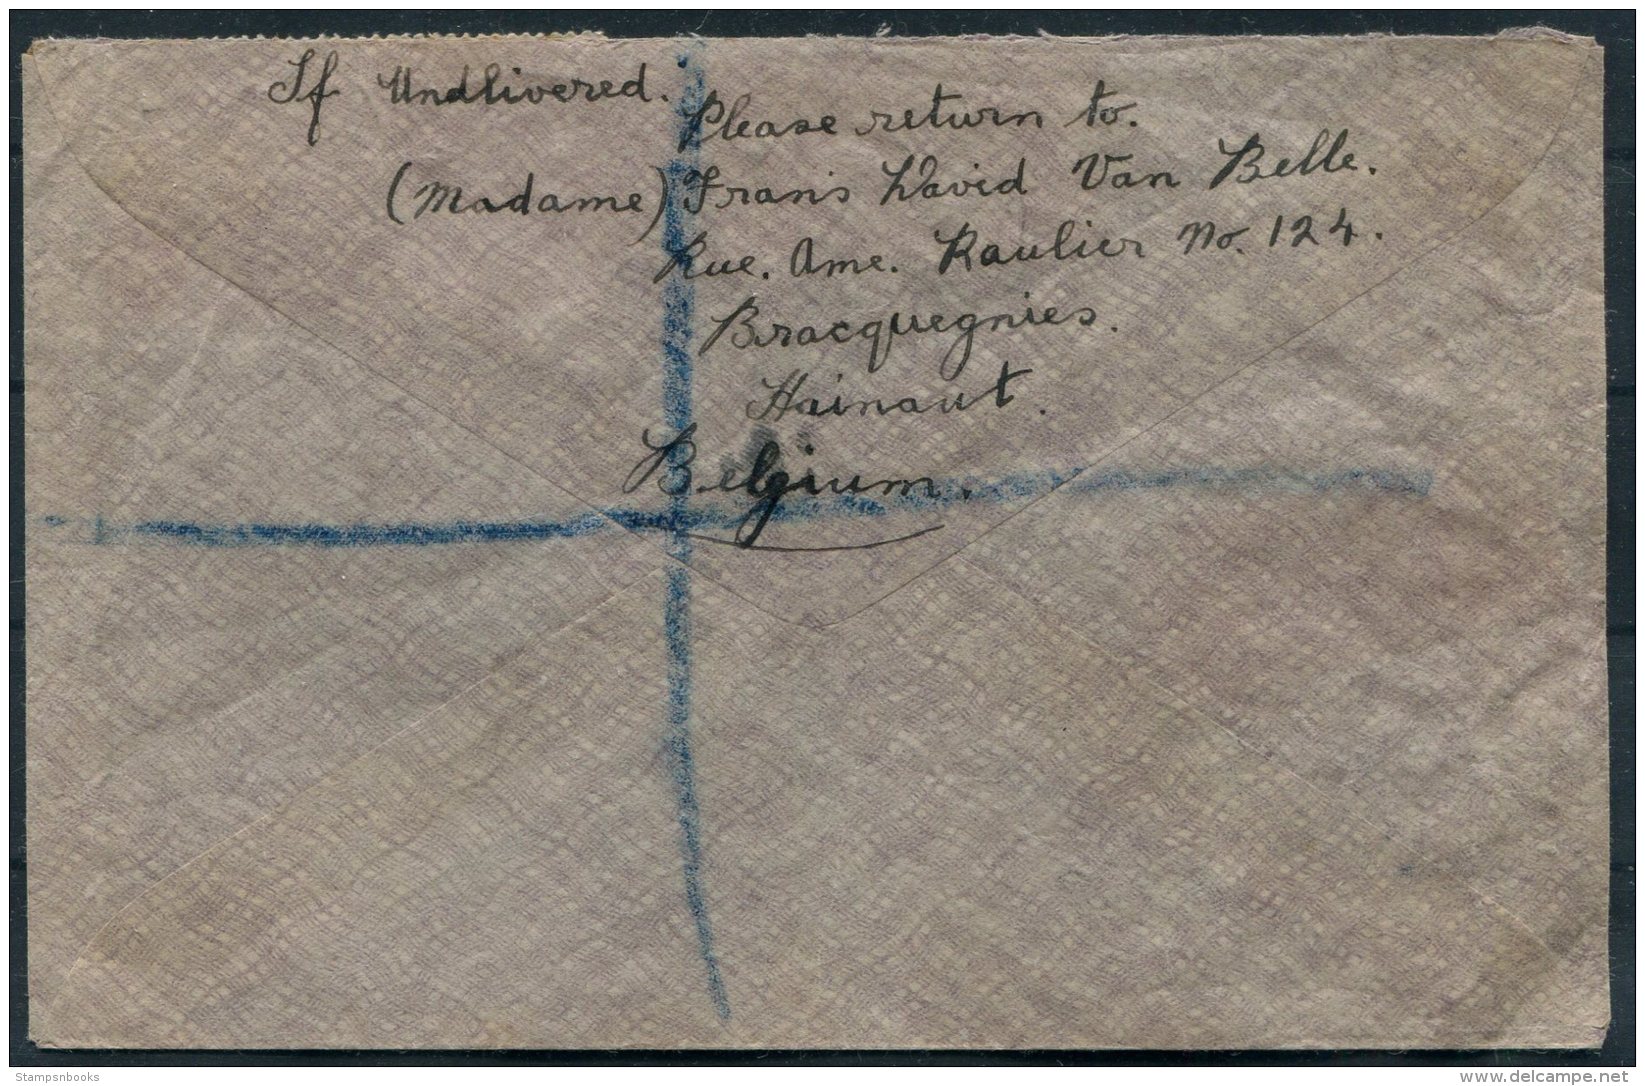 If Undlivered.
Please return to.
(Madame) Frans David Van Belle.
Rue. Ame. Raulier No. 124.
Bracquegnies.
Hainaut.
Belgium.
Stampsnbooks
delcampe.net